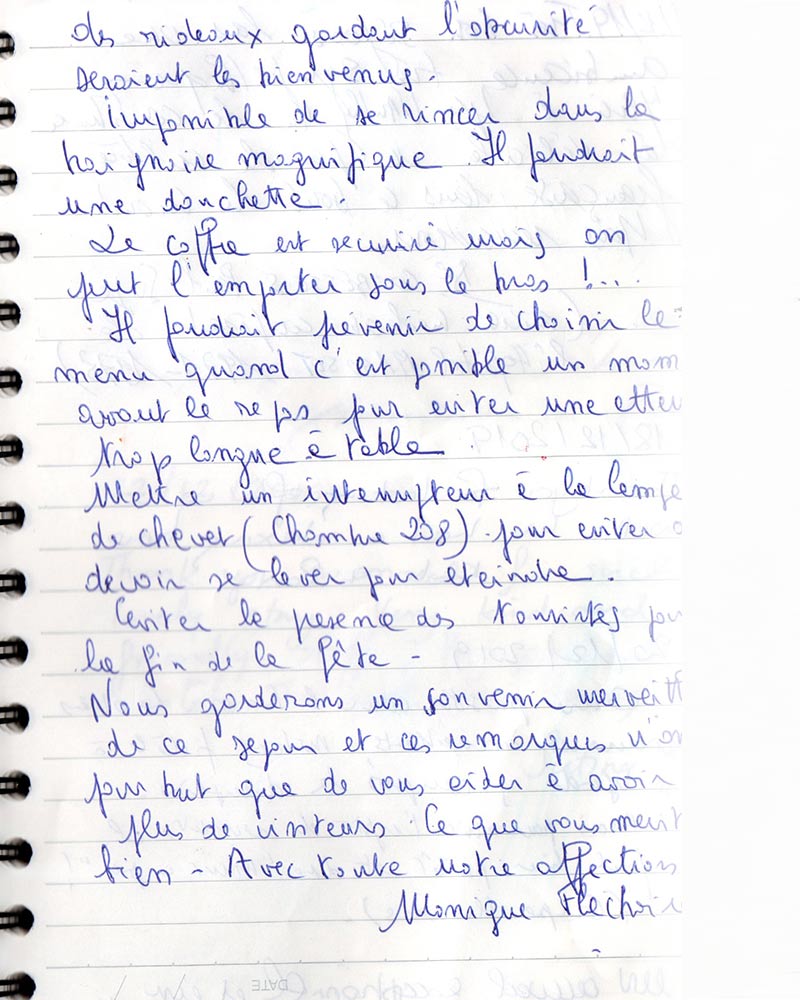 des rideaux gardant l'obscurité
seraient les bienvenus.
Impossible de se rincer dans la
baignoire magnifique. Il faudrait
une douchette.
Le coffre est sécurisé mais on
peut l'emporter sous le bras !...
Il faudrait prévenir de choisir le
menu quand c'est possible un mom
avant le repas pour eviter une atten
trop longue à table
Mettre un interrupteur à la lampe
de chevet (Chambre 208) pour eviter d
devoir se lever pour éteindre.
Eviter la presence des touristes pour
la fin de la fête -
Nous garderons un souvenir merveill
de ce sejour et ces remarques n'on
pour but que de vous aider à avoir
plus de visiteurs. Ce que vous merit
bien - Avec toute notre affection
Monique
DATE